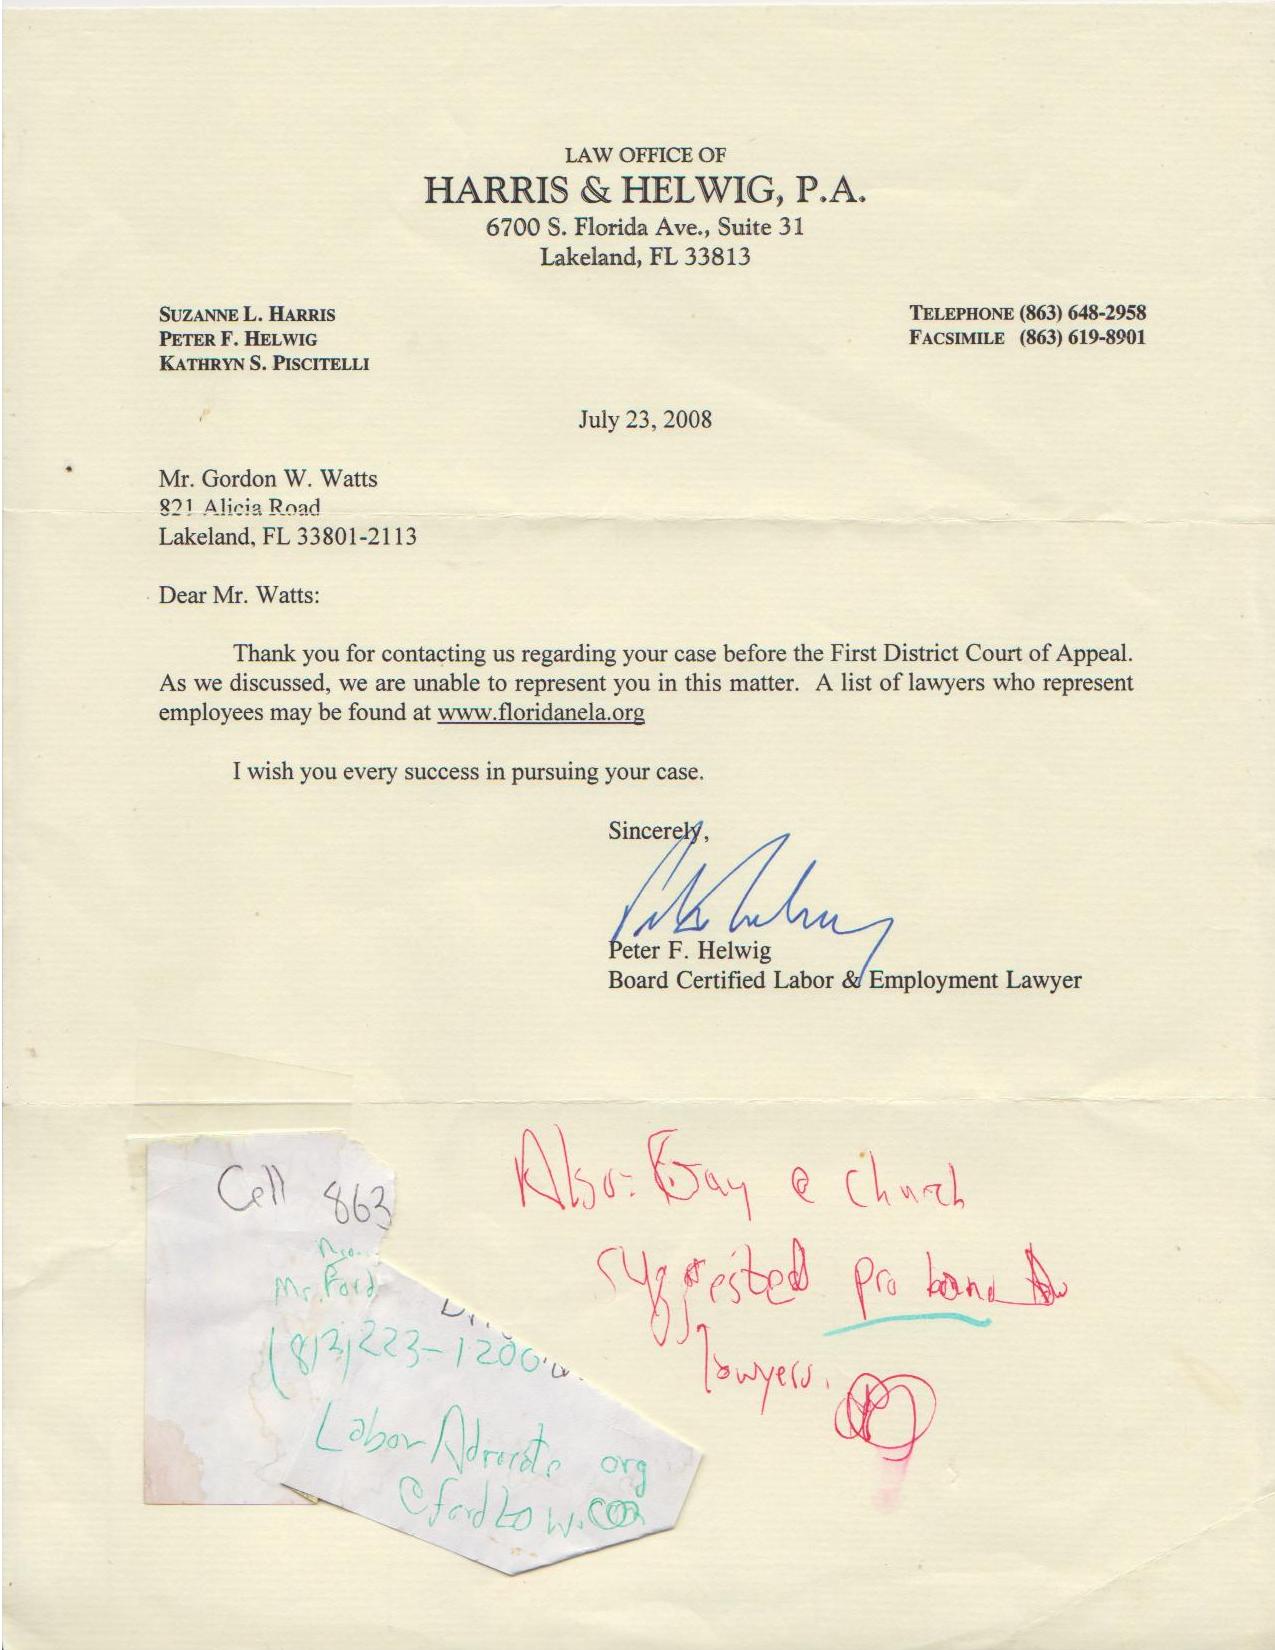 LAW OFFICE OF
HARRIS & HELWIG, P.A.
6700 S. Florida Ave., Suite 31
Lakeland, FL 33813
SUZANNE L. HARRIS
PETER F. HELWIG
KATHRYN S. PISCITELLI
TELEPHONE (863) 648-2958
FACSIMILE (863) 619-8901
July 23, 2008
Mr. Gordon W. Watts
821 Alicia Road
Lakeland, FL 33801-2113
Dear Mr. Watts:
Thank you for contacting us regarding your case before the First District Court of Appeal.
As we discussed, we are unable to represent you in this matter. A list of lawyers who represent
employees may be found at www.floridanela.org
I wish you every success in pursuing your case.
Sincerely,
Peter F. Helwig
Board Certified Labor & Employment Lawyer
Also: @ church
suggested pro bono
lawyers.
Cell 863
Mr. Ford
(813) 223-1200
Labor Advocate org